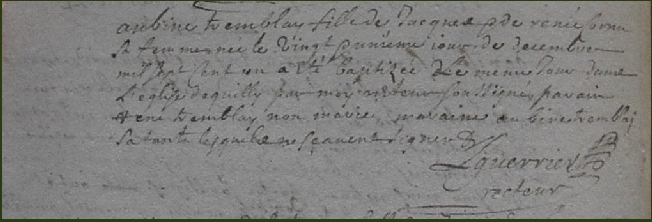 aubine tremblay fille de Jacques & de renée
sa femme née le vingt unième jour de decembre
mil sept cent un a été baptizée le même jour dans
l'eglise par moy recteur soussigné, parain
rené tremblay non marié, maraine aubine tremblai
sa tante lesquels ne sçauent signer
Lguerrier
recteur